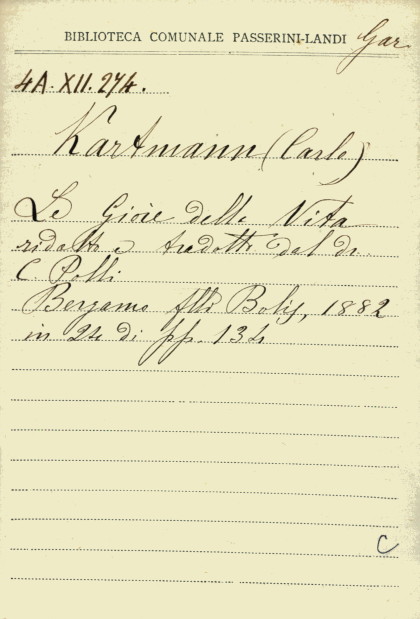 BIBLIOTECA COMUNALE PASSERINI-LANDI Gar
4A. XII. 274.
Kartmann (Carlo)
Le Gioie delle Vita
ridotto e tradotto dal dr.
C. Polli
Bergamo flli Bolis, 1882
in 24 di pp. 134
C